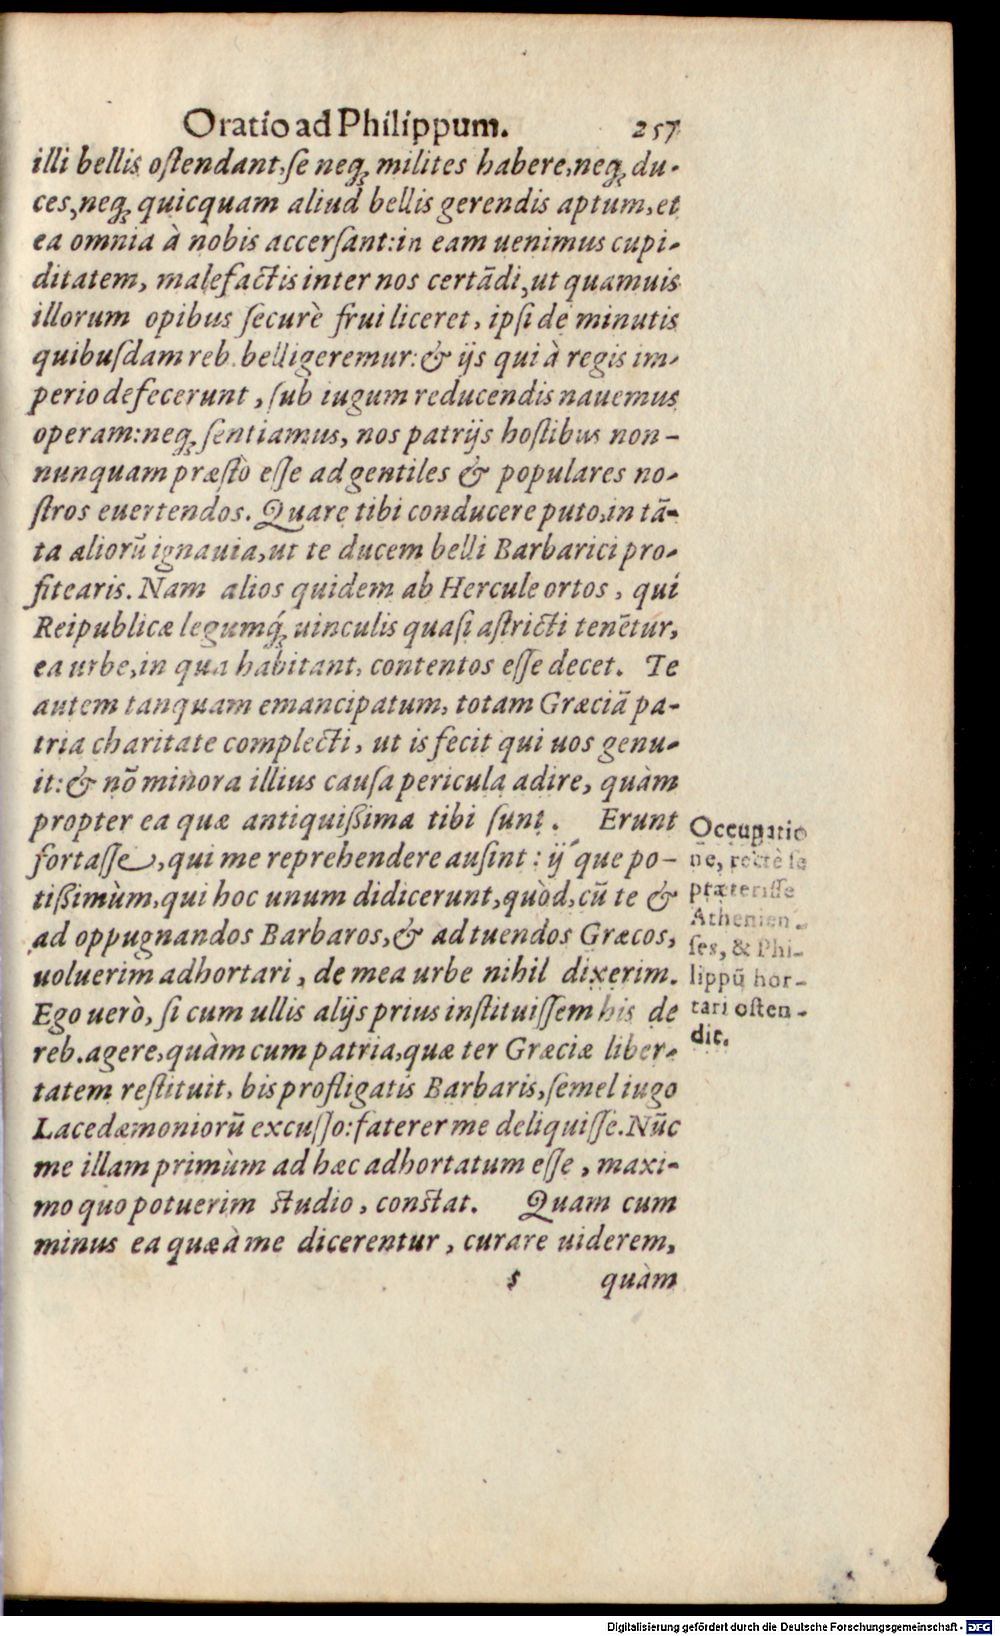 Oratio ad Philippum. 257
illi bellis ostendant, se neq; milites habere, neq; du-
ces, neq; quicquam aliud bellis gerendis aptum, et
ea omnia à nobis accersant: in eam uenimus cupi-
ditatem, malefactis inter nos certādi, ut quamuis
illorum opibus securè frui liceret, ipsi de minutis
quibusdam reb. belligeremur: & ijs qui à regis im-
perio defecerunt, sub iugum reducendis nauemus
operam: neq; sentiamus, nos patrijs hostibus non-
nunquam præstò esse ad gentiles & populares no-
stros euertendos. Quare tibi conducere puto, in tā-
ta aliorū ignauia, ut te ducem belli Barbarici pro-
fitearis. Nam alios quidem ab Hercule ortos, qui
Reipublicæ legumq́; uinculis quasi astricti tenētur,
ea urbe, in qua habitant, contentos esse decet. Te
autem tanquam emancipatum, totam Græciā pa-
tria charitate complecti, ut is fecit qui uos genu-
it: & nō minora illius causa pericula adire, quàm
propter ea quæ antiquißima tibi sunt. Erunt
fortasse, qui me reprehendere ausint: ij́que po-
tißimùm, qui hoc unum didicerunt, quòd, cū te &
ad oppugnandos Barbaros, & ad tuendos Græcos,
uoluerim adhortari, de mea urbe nihil dixerim.
Ego uerò, si cum ullis alijs prius instituissem his de
reb. agere, quàm cum patria, quæ ter Græciæ liber-
tatem restituit, bis profligatis Barbaris, semel iugo
Lacedæmoniorū excusso: faterer me deliquisse. Nūc
me illam primùm ad hæc adhortatum esse, maxi-
mo quo potuerim studio, constat. Quam cum
minus ea quæ à me dicerentur, curare uiderem,
s quàm
Occupatio
ne, rectè se
præterisse
Athenien-
ses, & Phi-
lippū hor-
tari osten-
dit.
Digitalisierung gefördert durch die Deutsche Forschungsgemeinschaft - DFG